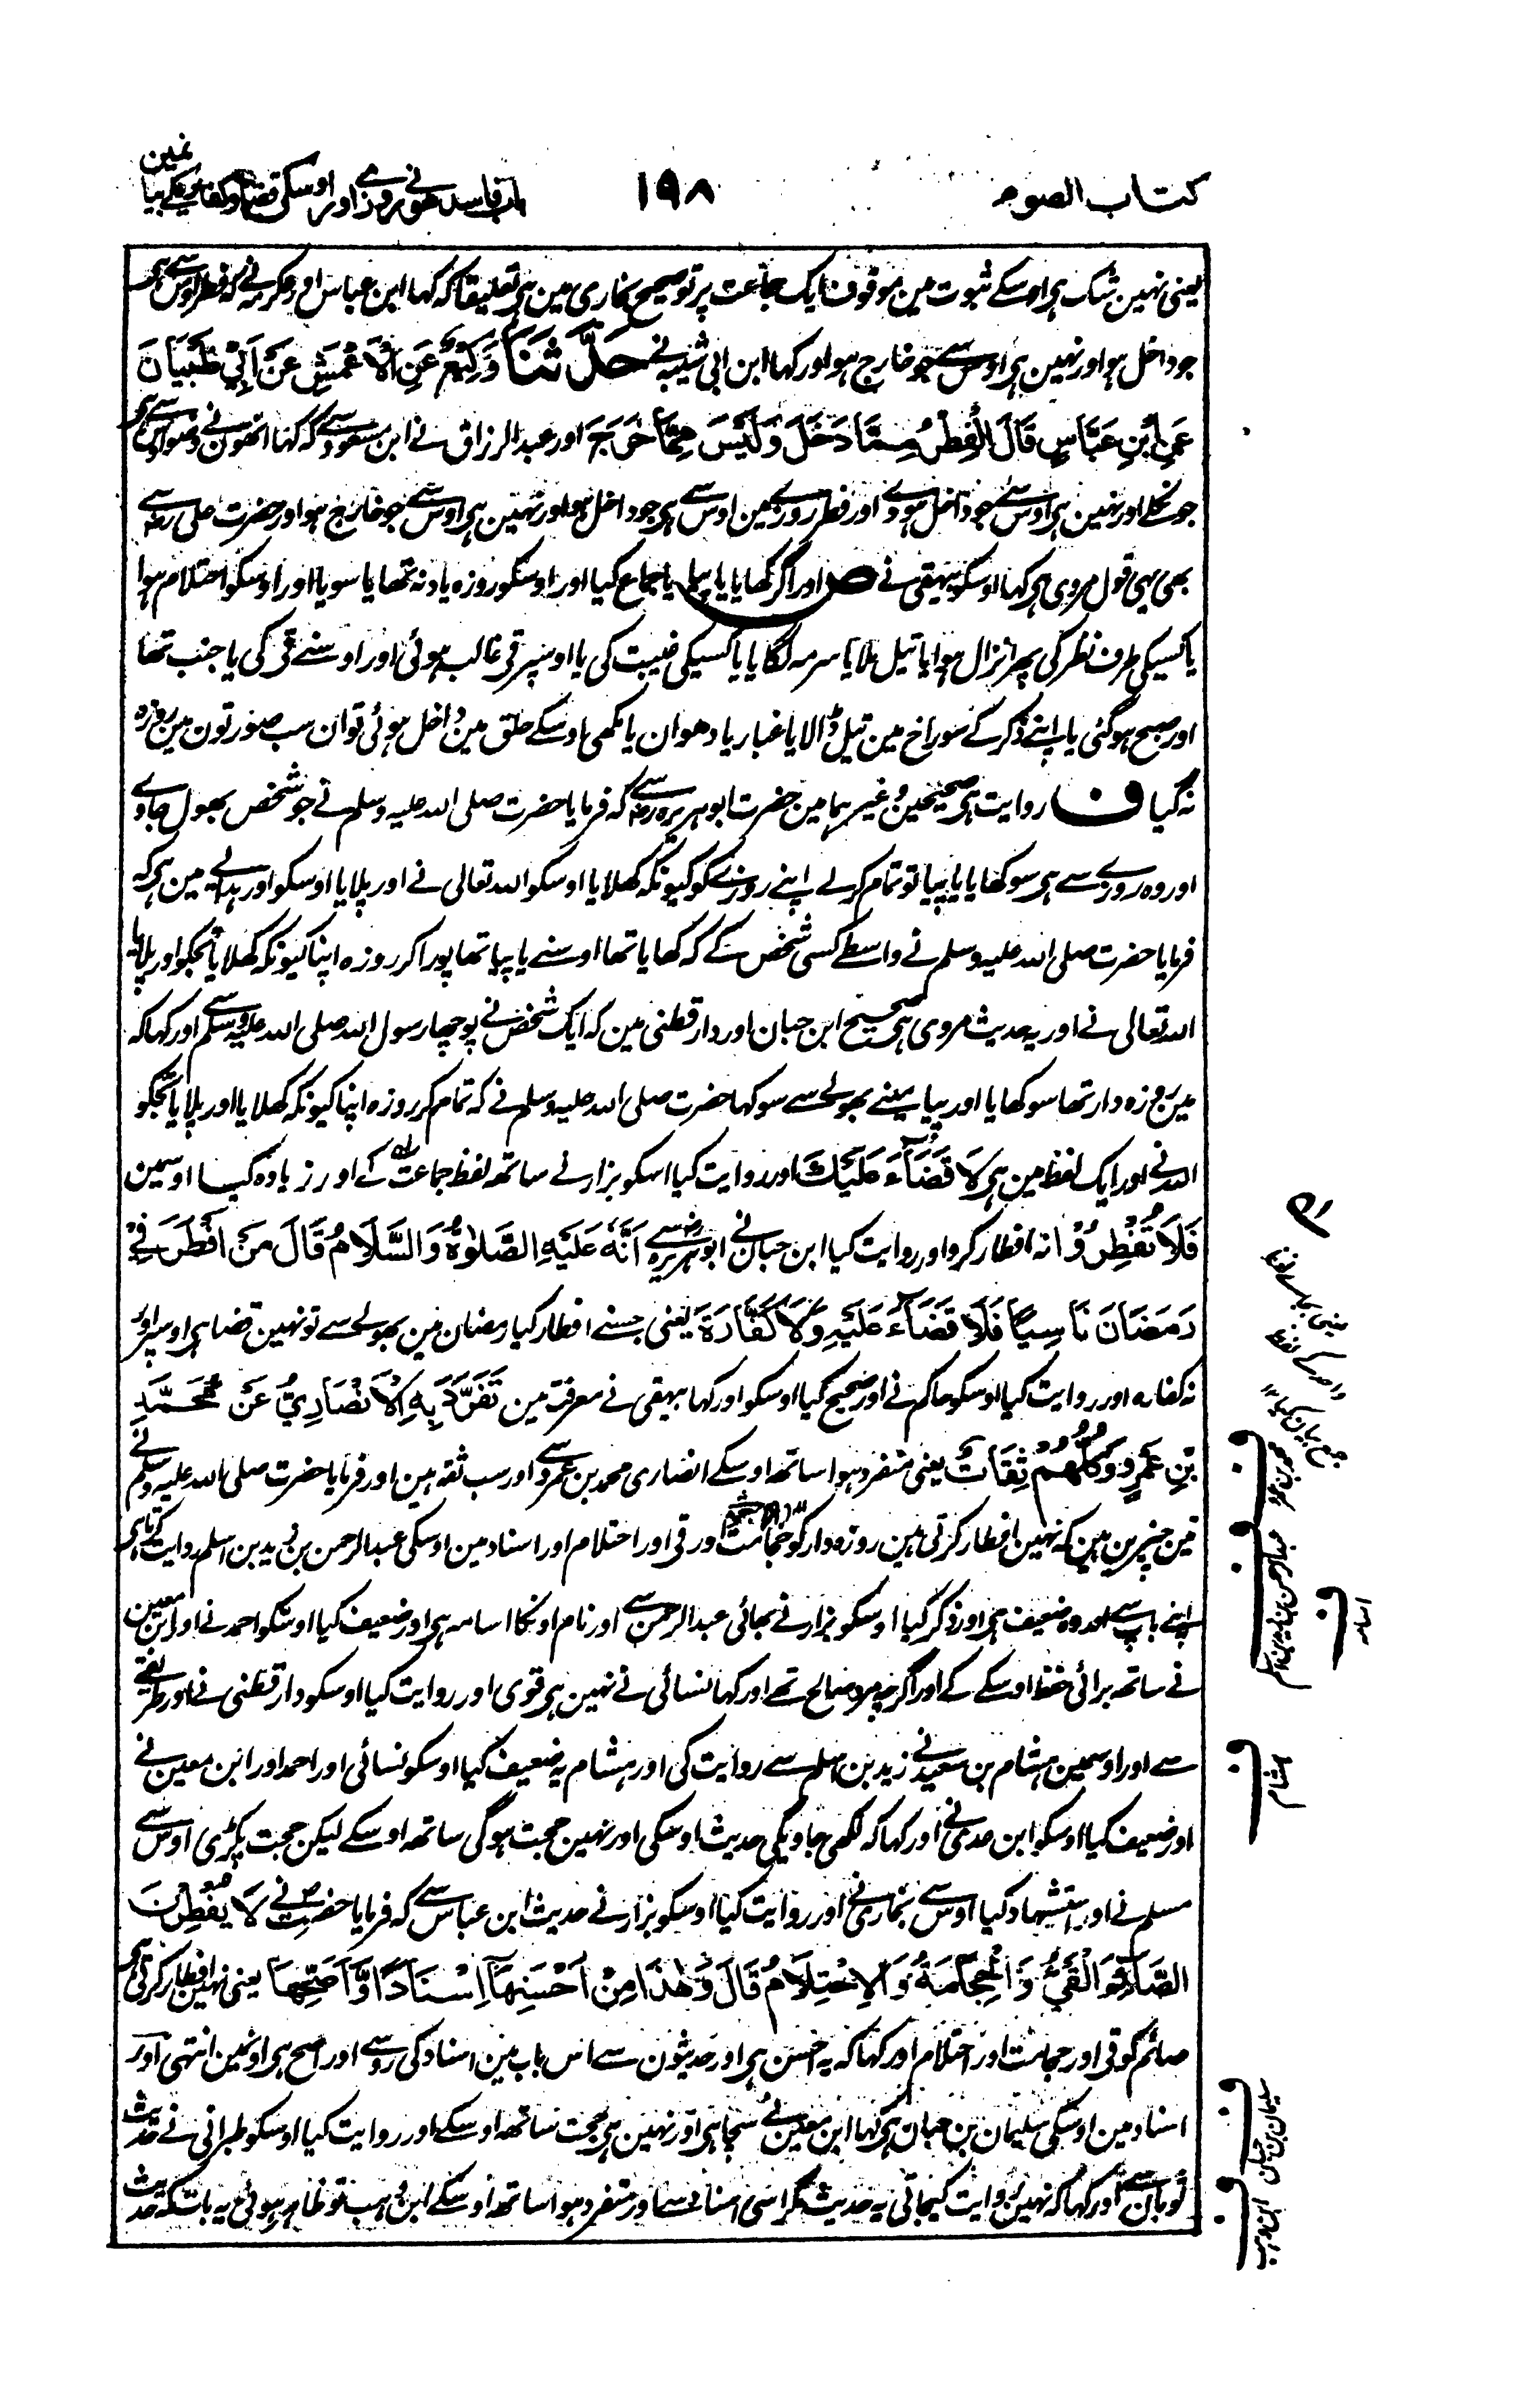 کتاب الصوم
۱۹۸
باب فاسد هونے روزے اور اوسکی قضا و کفارہ کے بیان مین
یعنی نہین شک ہی اوسکے ثبوت مین موقوف ایک جماعت پر تو صحیح بخاری مین ہی تعلیقا کہ کہا ابن عباس اور عکرمہ نے کہ فطر اوس سے ہی
جو داخل ہو اور نہین ہی اوس سے جو خارج ہو اور کہا ابن ابی شیبہ نے حَدَّثَنَا وَکِیْعٌ عَنِ الْاَعْمَشِ عَنْ اَبِیْ ظَبْیَانَ
عَنِ ابْنِ عَبَّاسٍ قَالَ الْفِطْرُ مِمَّا دَخَلَ وَلَیْسَ مِمَّا خَرَجَ اور عبد الرزاق نے ابن مسعود سے کہ کہا انھون نے وضو اوس سے ہی
جو نکلے اور نہین ہی اوس سے جو داخل ہووے اور فطر روزے مین اوس سے ہی جو داخل ہو اور نہین ہی اوس سے جو خارج ہو اور حضرت علی رضہ سے
بھی یہی قول مروی ہی کہا اوسکو بیہقی نے ص اور اگر کھایا یا پیا یا جماع کیا اور اوسکو روزہ یاد نہ تھا یا سویا اور اوسکو احتلام ہوا
یا کسیکی طرف نظر کی پھر انزال ہوا یا تیل ملا یا سرمہ لگایا یا کسیکی غیبت کی یا اوسپر قی غالب ہوئی اور اوسنے قی کی یا جنب تھا
اور صبح ہوگئی یا اپنے ذکر کے سوراخ مین تیل ڈالا یا غبار یا دھوان یا مکھی اوسکے حلق مین داخل ہوئی تو ان سب صورتون مین روزہ
نہ گیا ف روایت ہی صحیحین وغیرہما مین حضرت ابو ہریرہ رضہ سے کہ فرمایا حضرت صلی اللہ علیہ وسلم نے جو شخص بھول جاوے
اور وہ روزے سے ہی سو کھایا یا پیا تو تمام کرلے اپنے روزے کو کیونکہ کھلایا اوسکو اللہ تعالی نے اور پلایا اوسکو اور ہدایہ مین ہی کہ
فرمایا حضرت صلی اللہ علیہ وسلم نے واسطے کسی شخص کے کہ کھایا تھا اوسنے یا پیا تھا پورا کر روزہ اپنا کیونکہ کھلایا تجکو اور پلایا
اللہ تعالی نے اور یہ حدیث مروی ہی صحیح ابن حبان اور دار قطنی مین کہ ایک شخص نے پوچھا رسول اللہ صلی اللہ علیہ وسلم سے اور کہا کہ
مین روزہ دار تھا سو کھایا اور پیا مینے بھولے سے سو کہا حضرت صلی اللہ علیہ وسلم نے کہ تمام کر روزہ اپنا کیونکہ کھلایا اور پلایا تجکو
اللہ نے اور ایک لفظ مین ہی لَا قَضَاءَ عَلَیْكَ اور روایت کیا اسکو بزار نے ساتھ لفظ جماعت کے اور زیادہ کیا اوسمین
فَلَا تُفْطِرُوْا نہ افطار کرو اور روایت کیا ابن حبان نے ابو ہریرہ رضہ سے اَنَّهٗ عَلَیْهِ الصَّلٰوةُ وَالسَّلَامُ قَالَ مَنْ اَفْطَرَ فِیْ
رَمَضَانَ نَاسِیًا فَلَا قَضَاءَ عَلَیْهِ وَلَا کَفَّارَةَ یعنی جسنے افطار کیا رمضان مین بھولے سے تو نہین قضا ہی اوسپر اور
نہ کفارہ اور روایت کیا اوسکو حاکم نے اور صحیح کیا اوسکو اور کہا بیہقی نے معرفت مین تَفَرَّدَ بِهِ الْاَنْصَارِیُّ عَنْ مُحَمَّدِ
بْنِ عَمْرٍو وَکُلُّهُمْ ثِقَاتٌ یعنی متفرد ہوا ساتھ اوسکے انصاری محمد بن عمرو سے اور سب ثقہ ہین اور فرمایا حضرت صلی اللہ علیہ وسلم نے
تین چیزین ہین کہ نہین افطار کرتی ہین روزہ دار کو حجامت اور قی اور احتلام اور اسناد مین اوسکی عبد الرحمن بن زید بن اسلم روایت کرتا ہی
اپنے باپ سے اور وہ ضعیف ہی اور ذکر کیا اوسکو بزار نے بھائی عبد الرحمن سے اور نام اونکا اسامہ ہی اور ضعیف کیا اوسکو احمد نے اور ابن معین
نے ساتھ برائی حفظ اوسکے کے اور اگرچہ مرد صالح تھے اور کہا نسائی نے نہین ہی قوی اور روایت کیا اوسکو دار قطنی نے اور طریقے
سے اور اوسمین ہشام بن سعید نے زید بن اسلم سے روایت کی اور ہشام یہ ضعیف کیا اوسکو نسائی اور احمد اور ابن معین نے
اور ضعیف کیا اوسکو ابن عدی نے اور کہا کہ لکھی جاویگی حدیث اوسکی اور نہین حجت ہوگی ساتھ اوسکے لیکن حجت پکڑی اوس سے
مسلم نے اور استشہاد کیا اوس سے بخاری نے اور روایت کیا اوسکو بزار نے حدیث ابن عباس سے کہ فرمایا حضرت نے لَا یُفْطِرْنَ
الصَّائِمَ الْقَیْئُ وَالْحِجَامَةُ وَالْاِحْتِلَامُ قَالَ وَهٰذَا مِنْ اَحْسَنِهَا اِسْنَادًا وَّاَصَحِّهَا یعنی نہین افطار کرتی ہی
صائم کو قی اور حجامت اور احتلام اور کہا کہ یہ احسن ہی اور حدیثون سے اس باب مین اسناد کی رو سے اور اصح ہی اونمین انتہی اور
اسناد مین اوسکی سلیمان بن حبان ہی کہا ابن معین نے سچا ہی اور نہین ہی حجت ساتھ اوسکے اور روایت کیا اوسکو طبرانی نے حدیث
ثوبان سے اور کہا کہ نہین روایت کیجاتی یہ حدیث مگر اسی اسناد سے اور متفرد ہوا ساتھ اوسکے ابن وہب تو ظاہر ہوئی یہ بات کہ حدیث
یعنی بجاے لفظ
واحد کے لفظ
جمع بیان کیا ۱۲
محمد بن عمرو
عبد الرحمن بن زید بن اسلم
اسامہ
ہشام
سلیمان بن حبان
ابن وہب